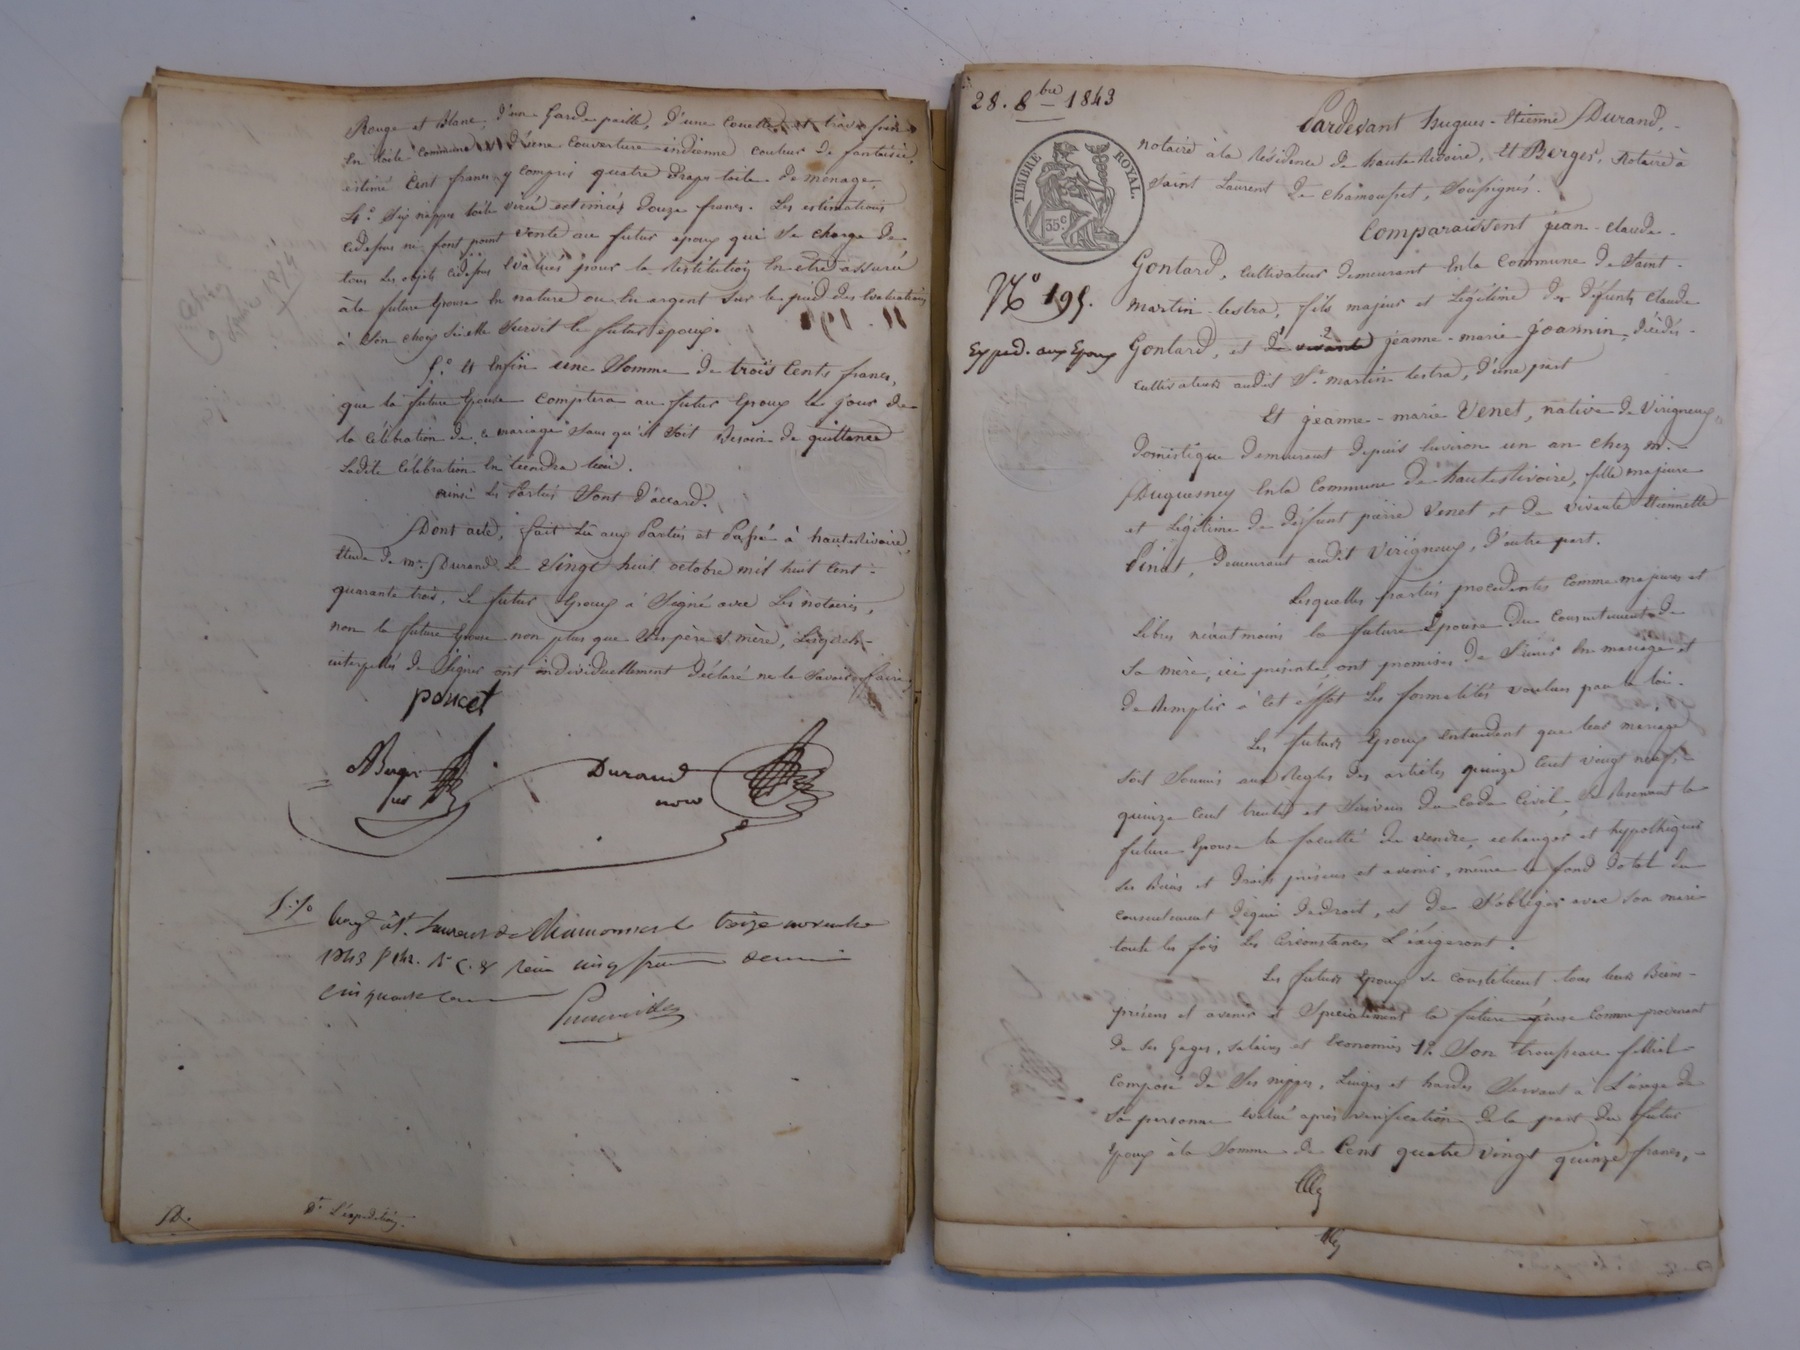 Rouge et Blanc, d'un Garde paille, d'une Couette et traversin
En toile commune, d'une couverture indienne couleur de fantaisie,
estimé Cent francs y compris quatre draps toile de ménage,
4.º Six nappes toile estimées douze francs. Les estimations
cidessus ne font point vente au futur époux qui se charge de
tous les objets cidessus évalués pour la Restitution En etre assurée
à la future Epouse En nature ou En argent sur le pied des Evaluations
à Son choix Si elle Survit le futur époux.
5.º Et Enfin une Somme de trois Cents francs,
que la future Epouse Comptera au futur Epoux le jour de
la Célébration de ce mariage Sans qu'il Soit Besoin de quittance
Ladite Célébration En tiendra lieu.
ainsi Les Parties Sont d'accord.
Dont acte, fait Lû aux Parties et Passé à haute Rivoire,
Etude de Mᵉ Durand Le Vingt huit octobre mil huit Cent
quarante trois, Le futur Epoux a Signé avec Les notaires,
non la future Epouse non plus que Ses père et mère, Lesquels
interpellés de Signer ont individuellement déclaré ne le Savoir faire
poncet
Berger
nre
Durand
nore
Enrgé à St. Laurent de Chamousset le treize novembre
1843 cinq francs
cinquante
Dt. L'expedition
28. 8bre 1843
TIMBRE ROYAL.
35c
Nº 195.
Exped. aux Epoux
Pardevant Hugues-Etienne Durand,
notaire à la Résidence de haute Rivoire, Et Berger, Notaire à
Saint Laurent de Chamousset, Soussignés.
Comparaissent jean-claude
Gontard, cultivateur demeurant En la Commune de Saint-
Martin-lestra, fils majeur et Légitime de défunts Claude
Gontard, et de vivante jeanne-marie joannin, décédés
cultivateurs audit St martin lestra, d'une part
Et jeanne-marie Venet, native de Virigneux,
domestique demeurant depuis Environ un an chez m.
Duquesney En la Commune de haute Rivoire, fille majeure
et Légitime de défunt pierre Venet et de vivante Etiennette
Pinat, demeurant audit Virigneux, d'autre part.
Lesquelles parties procédantes comme majeures et
Libres néanmoins la future Epouse du Consentement de
Sa mère, ici présente, ont promises de S'unir En mariage et
de Remplir à Cet effet Les formalités voulues par la loi.
Les futurs Epoux Entendent que leur mariage
Soit Soumis aux Règles des articles quinze Cent vingt neuf,
quinze Cent trente et Suivans du Code Civil, Se Réservant la
future Epouse la faculté de vendre, echanger et hypothèquer
Ses Biens et Droits présens et avenir, même le fond Dotal du
Consentement de droit, et de S'obliger avec Son mari
toute les fois Les Circonstances L'éxigeront.
Les futurs Epoux Se constituent tous leurs Biens
présens et avenir et Spécialement la future épouse Comme provenant
de Ses Gages, Salaires et Economies 1º. Son trousseau filliel
Composé de Ses nippes, Linges et hardes Servant à L'usage de
Sa personne Evalué après vérification de la part du futur
Epoux à la Somme de Cent quatre vingt quinze francs,